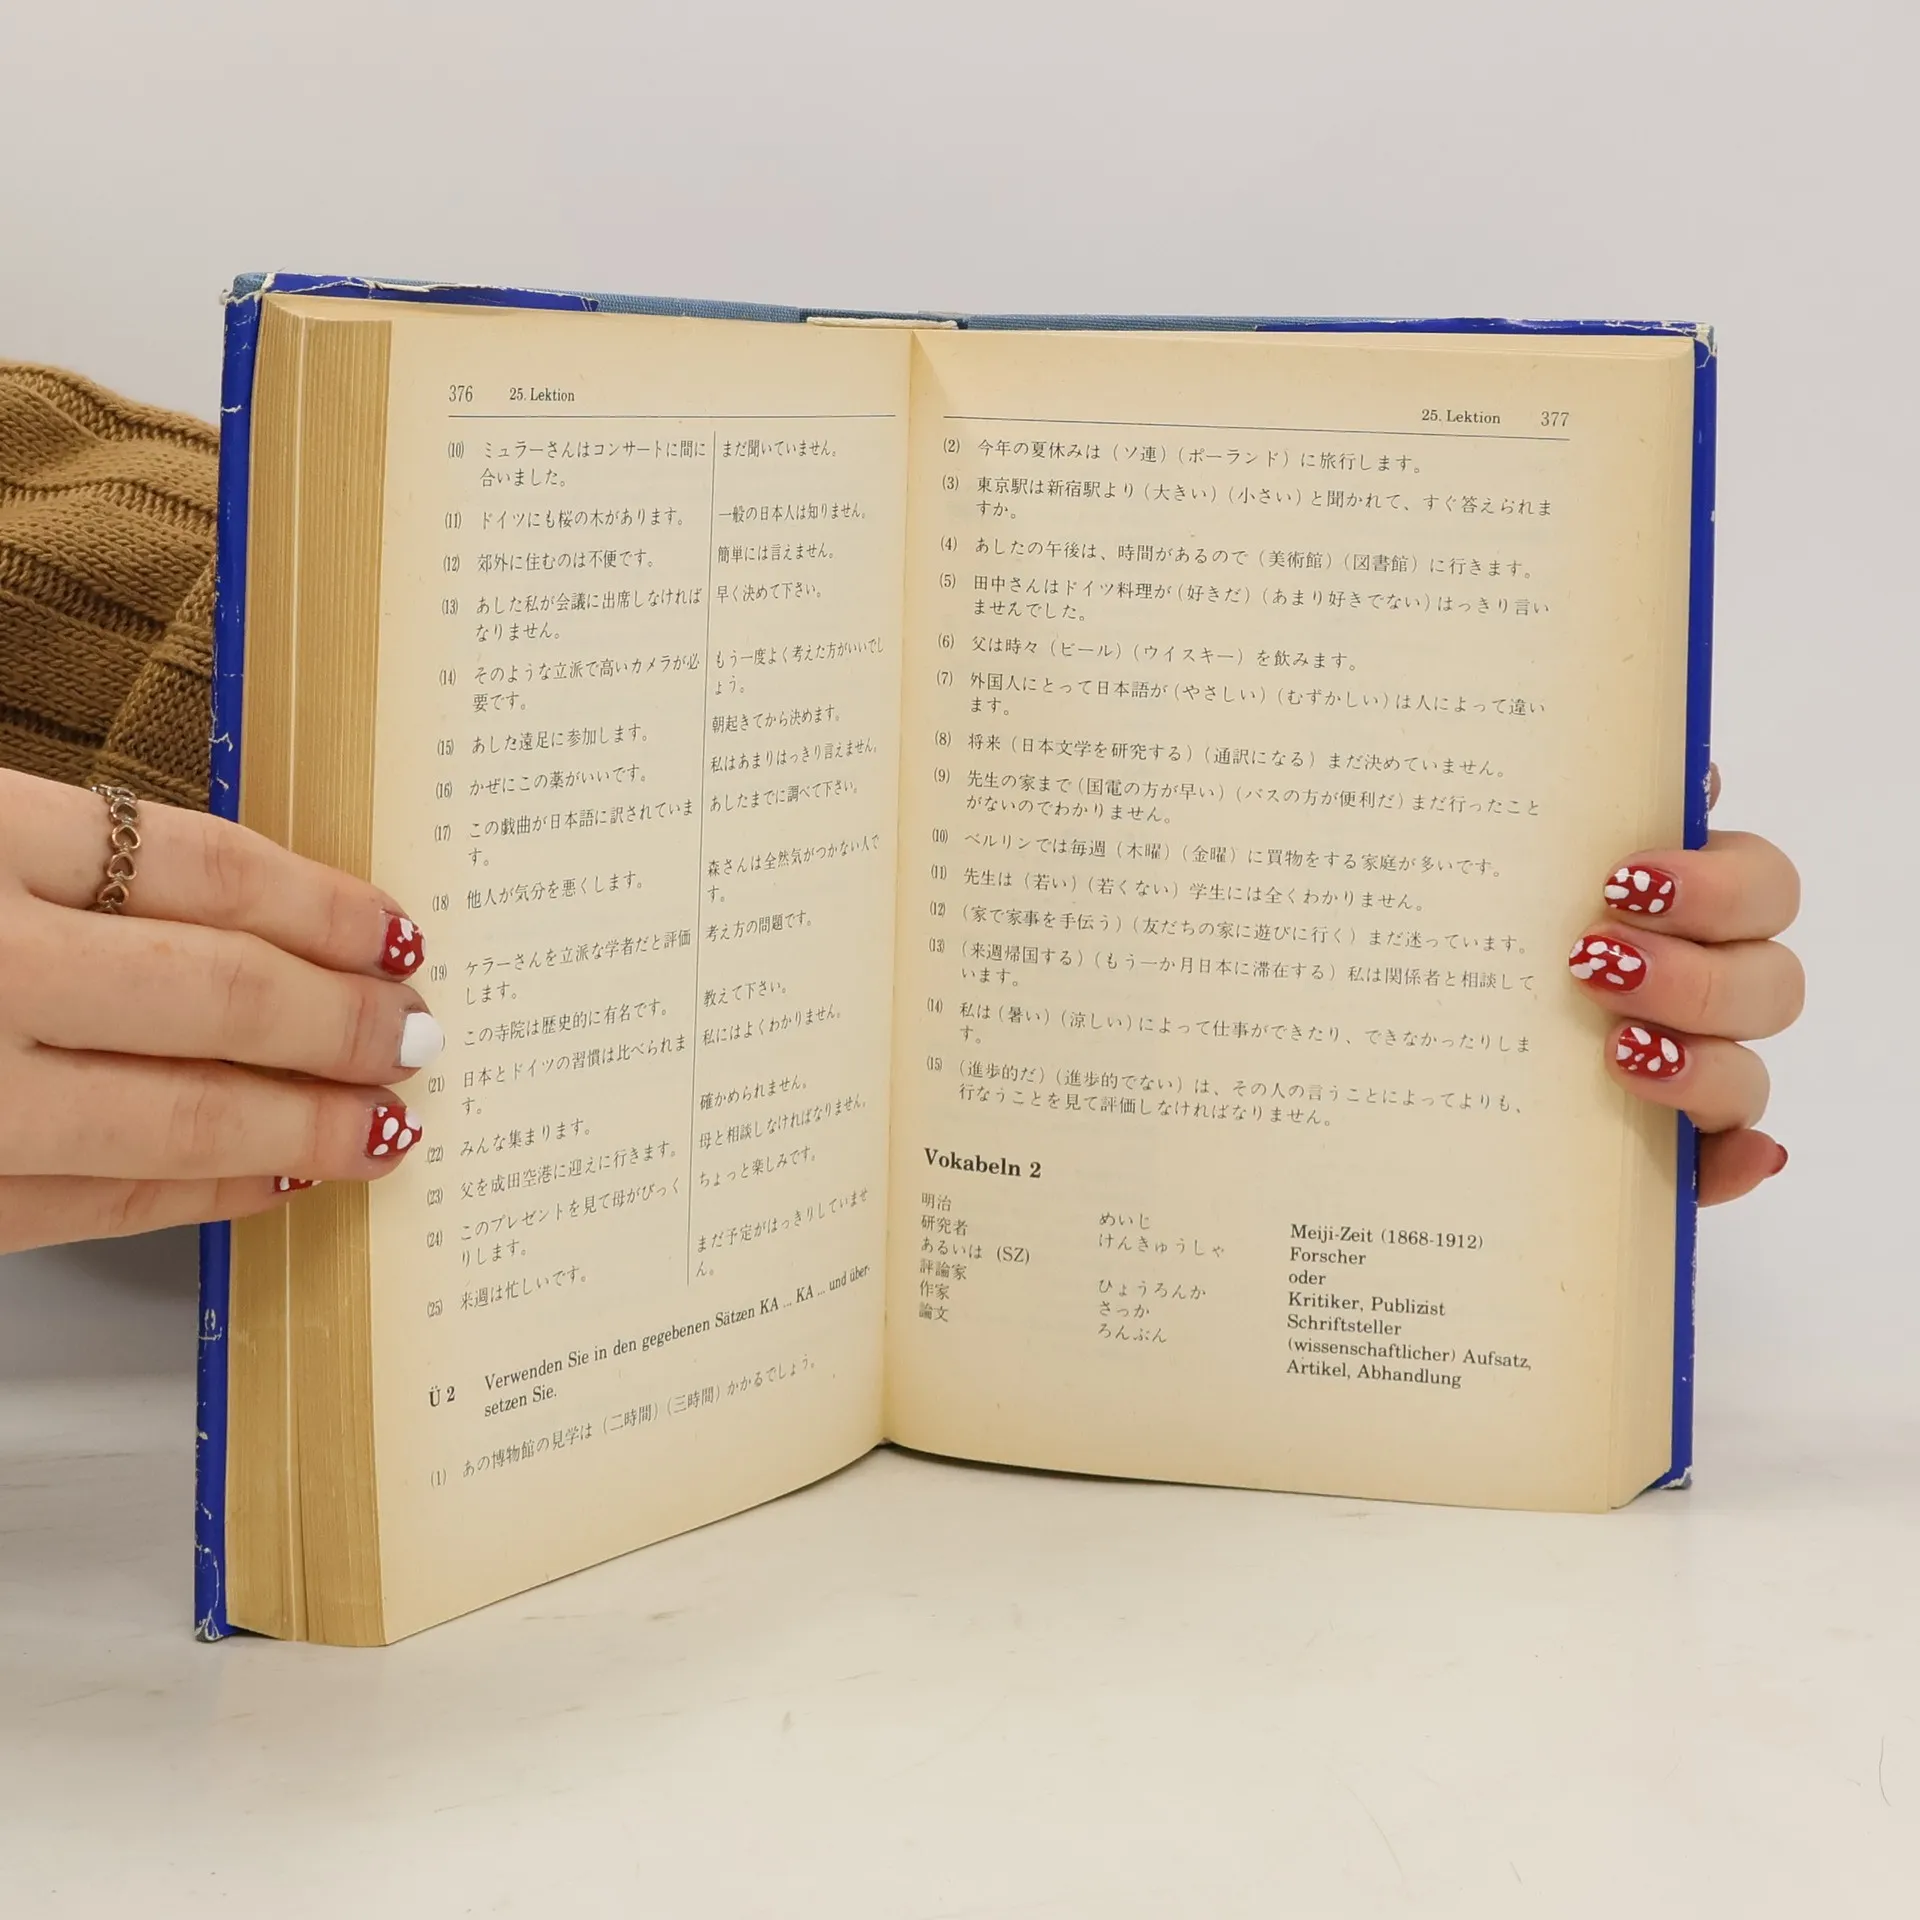 376 25. Lektion
(10) ミュラーさんはコンサートに間に
合いました。
まだ聞いていません。
(11) ドイツにも桜の木があります。
一般の日本人は知りません。
(12) 郊外に住むのは不便です。
簡単には言えません。
(13) あした私が会議に出席しなければ
なりません。
早く決めて下さい。
(14) そのような立派で高いカメラが必
要です。
もう一度よく考えた方がいいでし
ょう。
(15) あした遠足に参加します。
朝起きてから決めます。
(16) かぜにこの薬がいいです。
私はあまりはっきり言えません。
(17) この戯曲が日本語に訳されていま
す。
あしたまでに調べて下さい。
(18) 他人が気分を悪くします。
森さんは全然気がつかない人で
す。
(19) ケラーさんを立派な学者だと評価
します。
考え方の問題です。
この寺院は歴史的に有名です。
教えて下さい。
(21) 日本とドイツの習慣は比べられま
す。
私にはよくわかりません。
(22) みんな集まります。
確かめられません。
(23) 父を成田空港に迎えに行きます。
母と相談しなければなりません。
(24) このプレゼントを見て母がびっく
りします。
ちょっと楽しみです。
(25) 来週は忙しいです。
まだ予定がはっきりしていませ
ん。
Ü 2 Verwenden Sie in den gegebenen Sätzen KA ... KA ... und über-
setzen Sie.
(1) あの博物館の見学は（二時間）（三時間）かかるでしょう。
25. Lektion 377
(2) 今年の夏休みは（ソ連）（ポーランド）に旅行します。
(3) 東京駅は新宿駅より（大きい）（小さい）と聞かれて、すぐ答えられま
すか。
(4) あしたの午後は、時間があるので（美術館）（図書館）に行きます。
(5) 田中さんはドイツ料理が（好きだ）（あまり好きでない）はっきり言い
ませんでした。
(6) 父は時々（ビール）（ウイスキー）を飲みます。
(7) 外国人にとって日本語が（やさしい）（むずかしい）は人によって違い
ます。
(8) 将来（日本文学を研究する）（通訳になる）まだ決めていません。
(9) 先生の家まで（国電の方が早い）（バスの方が便利だ）まだ行ったこと
がないのでわかりません。
(10) ベルリンでは毎週（木曜）（金曜）に買物をする家庭が多いです。
(11) 先生は（若い）（若くない）学生には全くわかりません。
(12) （家で家事を手伝う）（友だちの家に遊びに行く）まだ迷っています。
(13) （来週帰国する）（もう一か月日本に滞在する）私は関係者と相談して
います。
(14) 私は（暑い）（涼しい）によって仕事ができたり、できなかったりしま
す。
(15) （進歩的だ）（進歩的でない）は、その人の言うことによってよりも、
行なうことを見て評価しなければなりません。
Vokabeln 2
明治 めいじ Meiji-Zeit (1868-1912)
研究者 けんきゅうしゃ Forscher
あるいは (SZ) oder
評論家 ひょうろんか Kritiker, Publizist
作家 さっか Schriftsteller
論文 ろんぶん (wissenschaftlicher) Aufsatz,
Artikel, Abhandlung